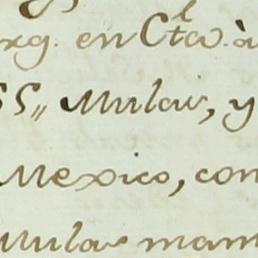 xg. en Cta à
SS,, Mulas, y
Mexico, con
Mulas man